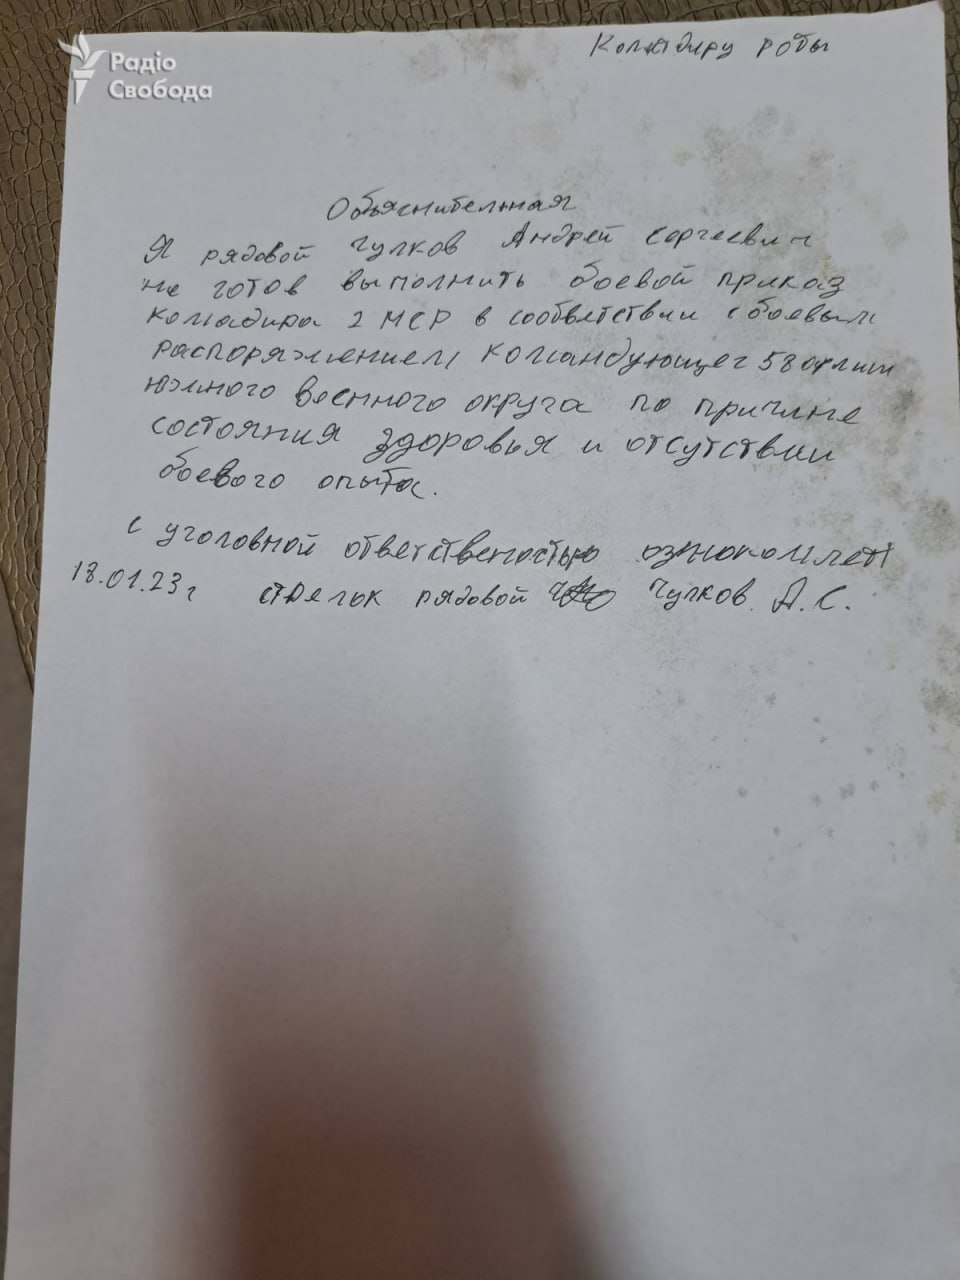 Радіо
Свобода
Командиру роты
Объяснительная
Я рядовой Чулков Андрей Сергеевич
не готов выполнить боевой приказ
командира 2 МСР в соответствии с боевым
распоряжением командующег 58 армии
южного военного округа по причине
состояния здоровья и отсутствии
боевого опыта.
с уголовной ответственостью ознокомлен
18.01.23г стрельк рядовой Чулков А.С.